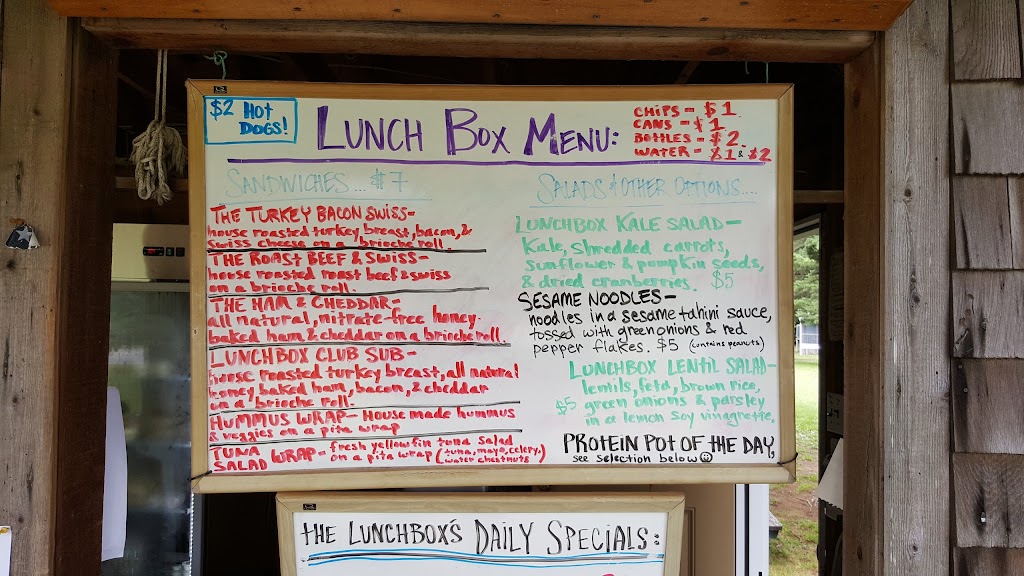 $2 HOT
DOGS!
LUNCH BOX MENU:
CHIPS - $1
CANS - $1
BOTTLES - $2
WATER - $1 & $2
SANDWICHES... $7
THE TURKEY BACON SWISS-
house roasted turkey breast, bacon, &
swiss cheese on a brioche roll.
THE ROAST BEEF & SWISS-
house roasted roast beef & swiss
on a brioche roll.
THE HAM & CHEDDAR-
all natural, nitrate-free honey
baked ham & cheddar on a brioche roll.
LUNCHBOX CLUB SUB-
house roasted turkey breast, all natural
honey baked ham, bacon, & cheddar
on a brioche roll.
HUMMUS WRAP- House made hummus
& veggies on a pita wrap
TUNA SALAD WRAP- fresh yellowfin tuna salad
on a pita wrap (tuna, mayo, celery, water chestnuts)
SALADS & OTHER OPTIONS....
LUNCHBOX KALE SALAD-
Kale, shredded carrots,
sunflower & pumpkin seeds,
& dried cranberries. $5
SESAME NOODLES-
noodles in a sesame tahini sauce,
tossed with green onions & red
pepper flakes. $5 (contains peanuts)
LUNCHBOX LENTIL SALAD-
lentils, feta, brown rice,
$5 green onions & parsley
in a lemon soy vinagrette.
PROTEIN POT OF THE DAY,
see selection below
THE LUNCHBOX'S DAILY SPECIALS: